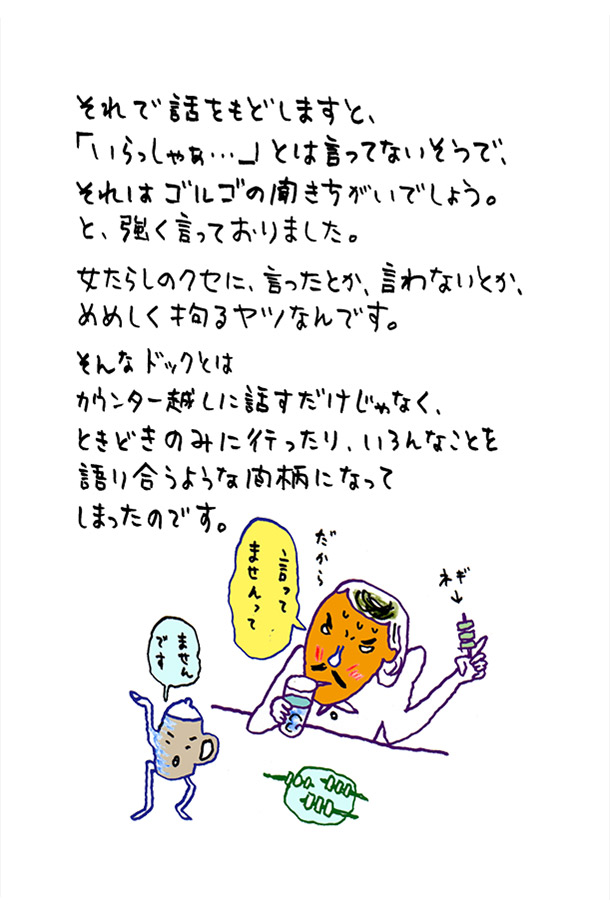 それで話をもどしますと、
「いらっしゃぁ…」とは言ってないそうで、
それはゴルゴの聞きちがいでしょう。
と、強く言っておりました。
女たらしのクセに、言ったとか、言わないとか、
めめしく拘るヤツなんです。
そんなドックとは
カウンター越しに話すだけじゃなく、
ときどきのみに行ったり、いろんなことを
語り合うような間柄になって
しまったのです。
だから
言って
ませんって
ネギ
ません
です